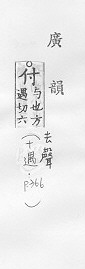 廣韻
付 与也方
遇切六
去聲
(十遇·P366)